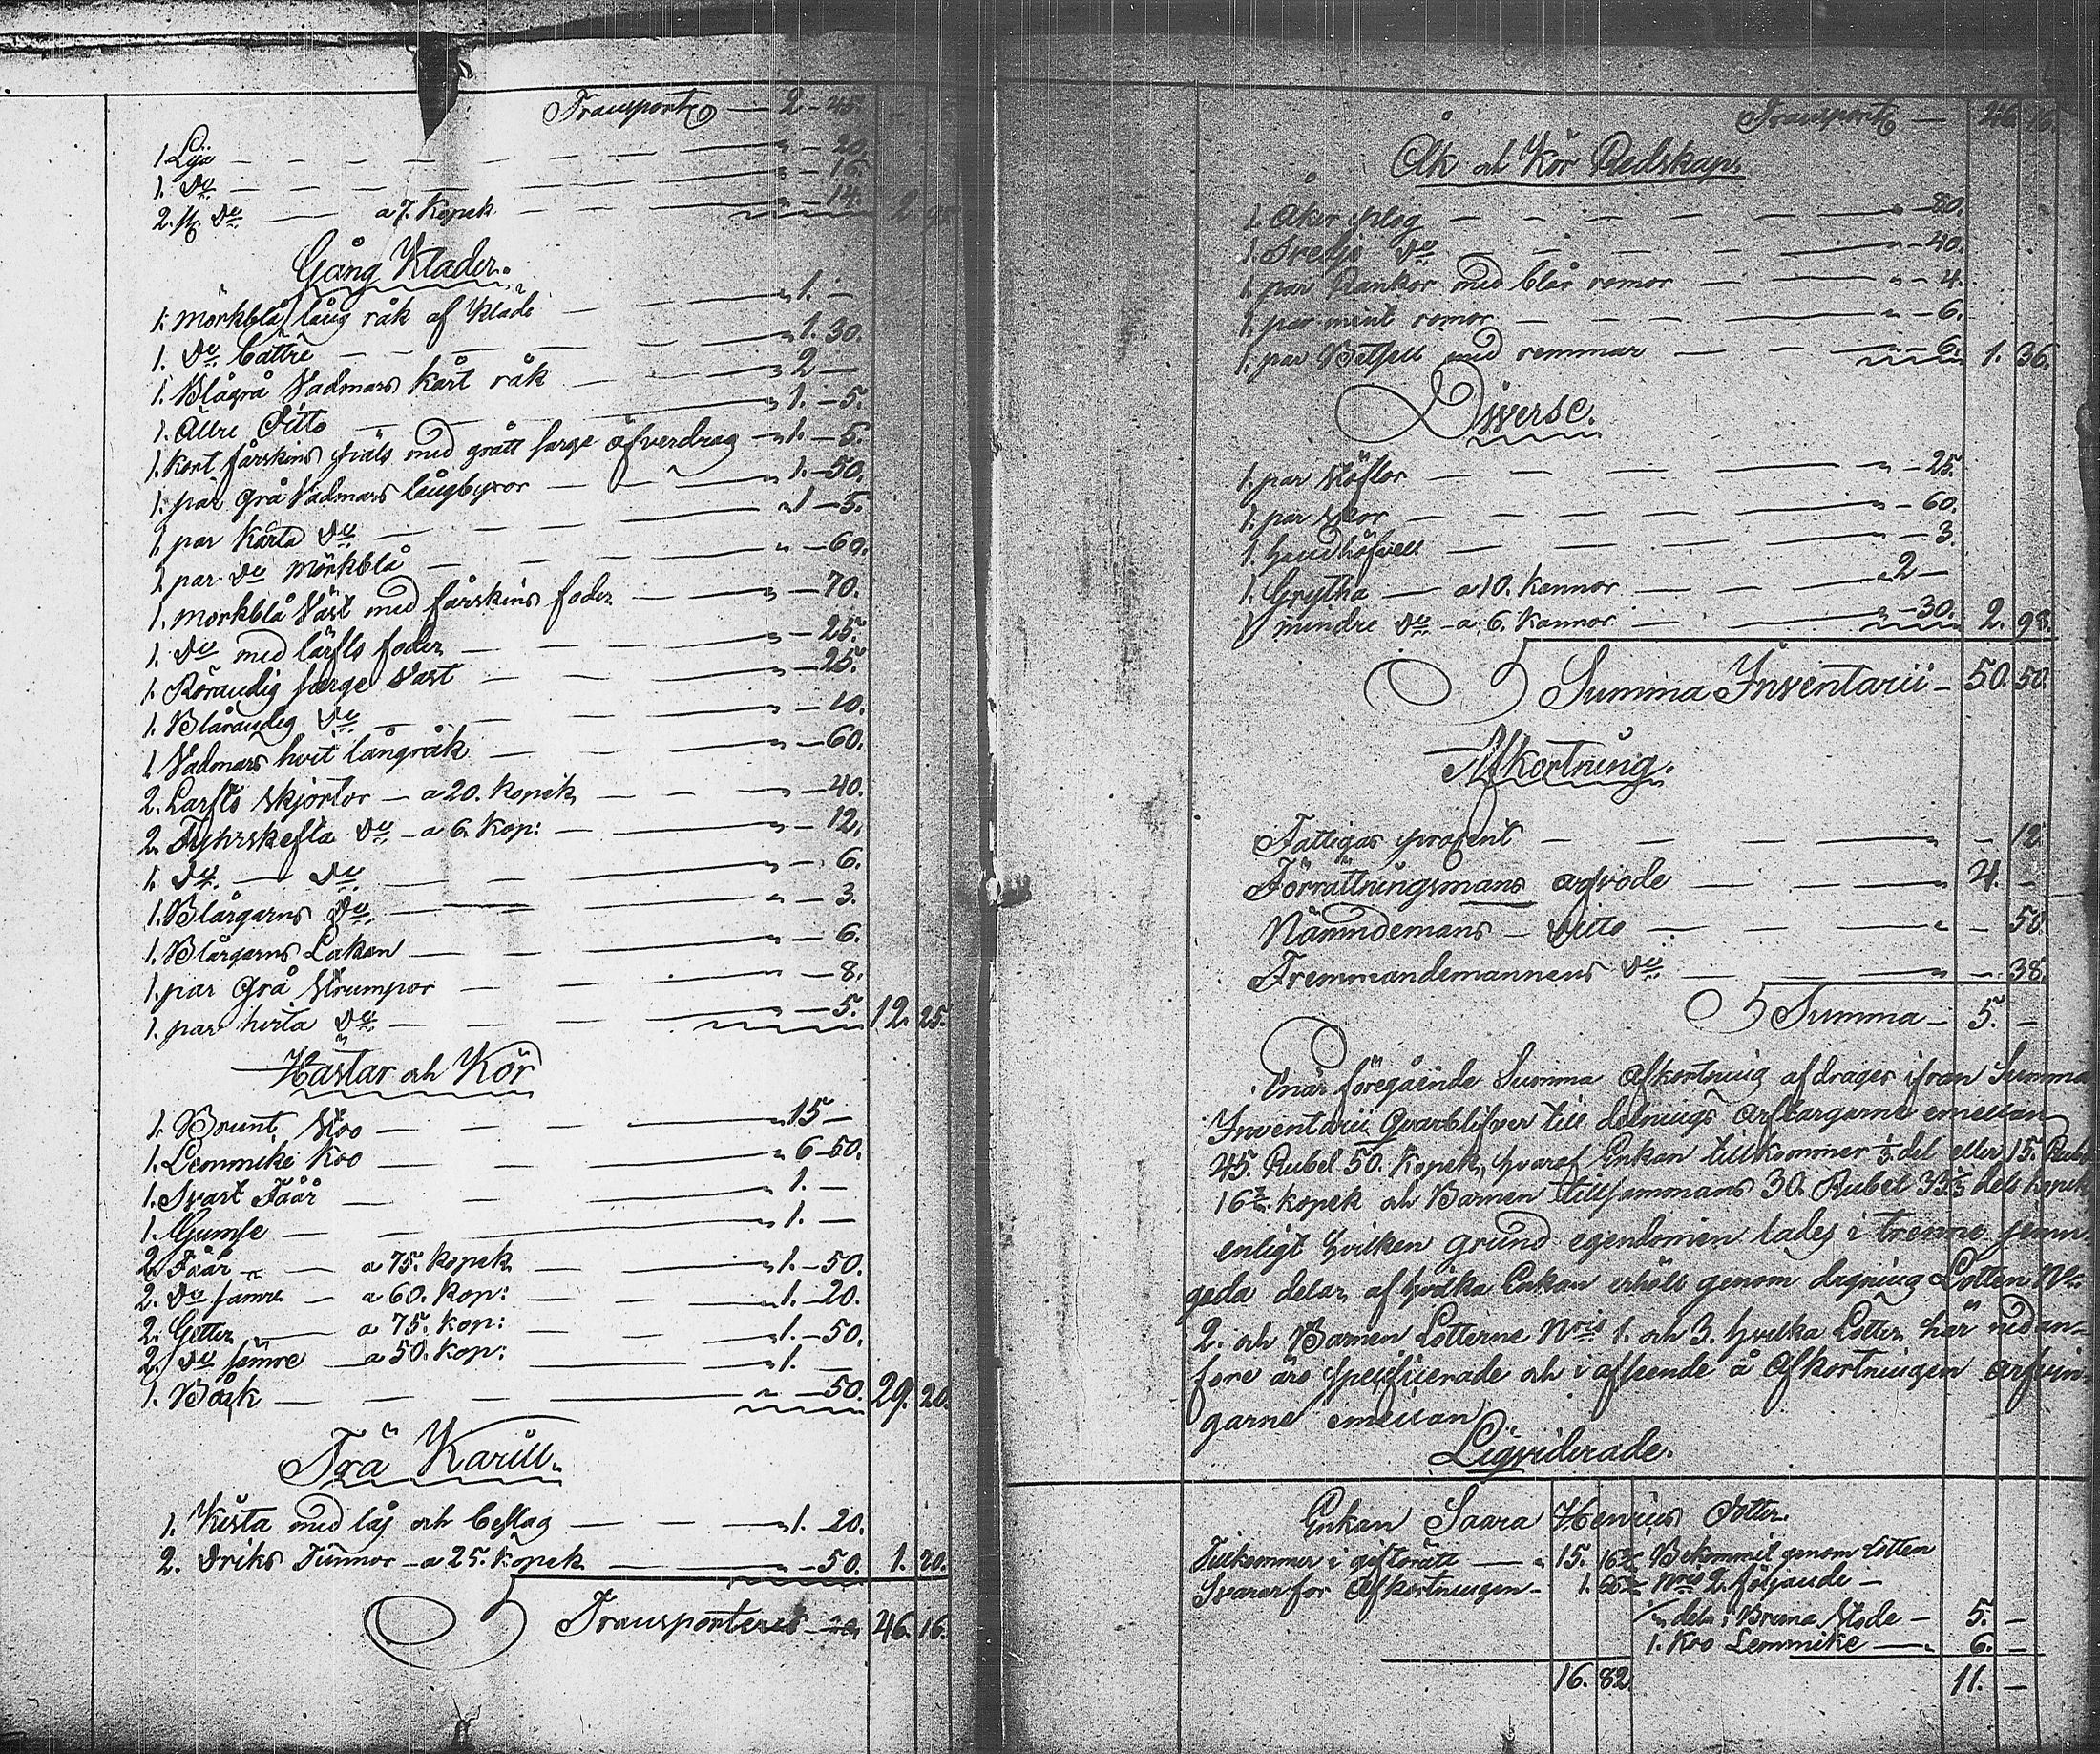 Transport — 2 – 45.
1. Lja — — — „ – 20.
1. Do — — — „ – 16.
2. st. Do — a 7. Kopek — „ – 14. 2. 95
Gång Kläder.
1. Mörkblå lång råk af Kläde — „ 1. –
1. Do battre — — „ 1. 30.
1. Blågrå Vadmars kårt råk — „ 2 –
1. Ällre Ditto — — „ 1. – 5.
1. Kort fårskins päls med grått sarge öfverdrag — „ 1. – 5.
1. par grå Vadmars långbyxor — „ 1. – 50.
1. par Kårta Do — — „ 1 – 5.
1. par Do Mörkblå — — „ – 60.
1. morkblå Väst med fårskins foder — „ – 70.
1. Do med lärfts foder — „ – 25.
1. Rörandig sarge Väst — „ – 25.
1. Blårandig Do — — „ – 10.
1. Vadmars hvit långråk — „ – 60.
2. Larfts skjortor — a 20. Kopek — „ – 40.
2. Fyhrskefta Do — a 6. Kop: — „ – 12.
1. Do — Do — „ – 6.
1. Blårgarns Do — „ – 3.
1. Blårgarns Lakan — „ – 6.
1. par Grå Strumpor — „ – 8.
1. par hvita Do — — „ – 5. 12. 25.
Hästar och Kör
1. Brunt Stoo — — „ 15 –
1. Lemmike Koo — — „ 6 – 50.
1. Svart Fåår — — „ 1. –
1. Gumse — — „ 1. –
2. Fåår — a 75. Kopek — „ 1. – 50.
2. Do sämre — a 60. Kop: — „ 1. – 20.
2. Getter — a 75. Kop: — „ 1. – 50.
2. Do sämre — a 50. Kop: — „ 1. –
1. Båk — — „ – 50. 29. 20.
Trä Karill.
1. Kista med lås och beslag — „ 1. 20.
2. Driks Tunnor — a 25. Kopek — „ – 50. 1. 70.
Transporteres 46. 16.
Transport — 46 16.
Åk och Kör Redskap.
1. Åker plog — — „ – 80.
1. Do — — „ – 40.
1. par Rankor med blår romor — „ – 4.
1. par romor — „ – 6.
1. par Betsell med remmar — „ – 6. 1. 36.
Diverse.
1. par Stöflor — — „ – 25.
1. par Skor — — „ – 60.
1. handhöfvell — — „ – 3.
1. Grytha — a 10. Kannor — „ 2 –
1 mindre Do — a 6. Kannor — „ – 30. 2. 98.
Summa Inventarii — 50. 50
Afkortning.
Fattigas prosent — — „ – 12
Förrättningsmans arfvode — — „ 4. –
Nämndemans — Ditto — — „ – 50
Fremmandemannens Do — — „ – 38.
Summa — 5. –
Enär föregående Summa Afkortning afdrages ifrån Summa
Inventarii Qvarblifver till delnings Arftagarne emellan
45. Rubel 50. Kopek, hvaraf Enkan tillkommer 1/3 del eller 15. Rubel
16 2/3 Kopek och Barnen tillsammans 30. Rubel 33 1/3 dels kopek
enligt hvilken grund egendomen lades i trenne jemn-
goda delar, af hvilka Enkan erhöll genom dragning Lotten No
2. och Barnen Lotterne Nris 1. och 3. hvilka Lotter här nedan-
fore äro specifiserade och i afseende å Afkortningen arfvin-
garne emellan
Liqviderade.
Enkan Saara Henrics Dotter.
Tillkommer i giftorätt — „ 15. 16 2/3 Bekommit genom lotten
Svarar för Afkortningen — 1. 66 2/3 Nris 2. följande —
deln i Bruna Stode — 5. –
1. Koo Lemmike — „ 6. –
16. 82. 11. –